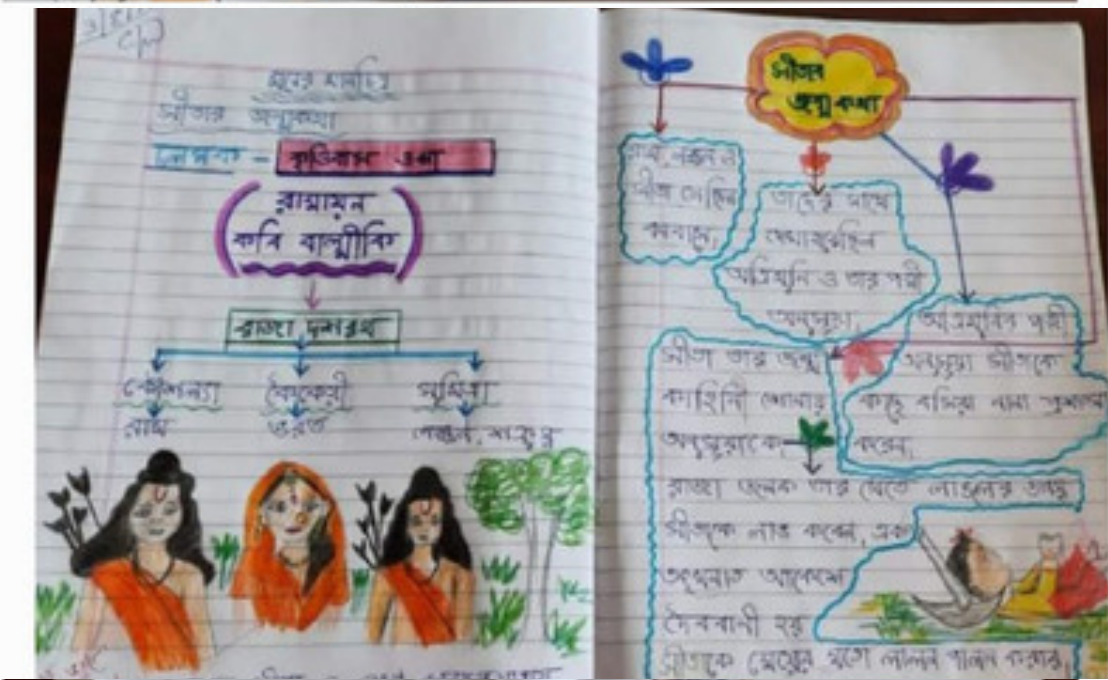 মনের মানচিত্র
সীতার জন্মকথা
লেখক - কৃত্তিবাস ওঝা
রামায়ন
কবি বাল্মীকি
রাজা দশরথ
কৌশল্যা কৈকেয়ী সুমিত্রা
রাম ভরত লক্ষন, শত্রুঘ্ন
সীতার
জন্মকথা
সীতা গেছিল
বনবাসে,
তাদের সাথে
দেখা হয়েছিল
অত্রিমুনি ও তার পত্নী
অনুসূয়া,
অত্রিমুনির পত্নী
অনুসূয়া সীতাকে
কাছে বসিয়া নানা প্রশংসা
করেন,
সীতা তার জন্ম
কাহিনী শোনায়
অনুসূয়াকে
রাজা জনক তার ক্ষেতে লাঙলের
সীতাকে লাভ করেন, এবং
তৎখনাত আকাশে
দৈববানী হয়
সীতাকে মেয়ের মতো লালন পালন করার,